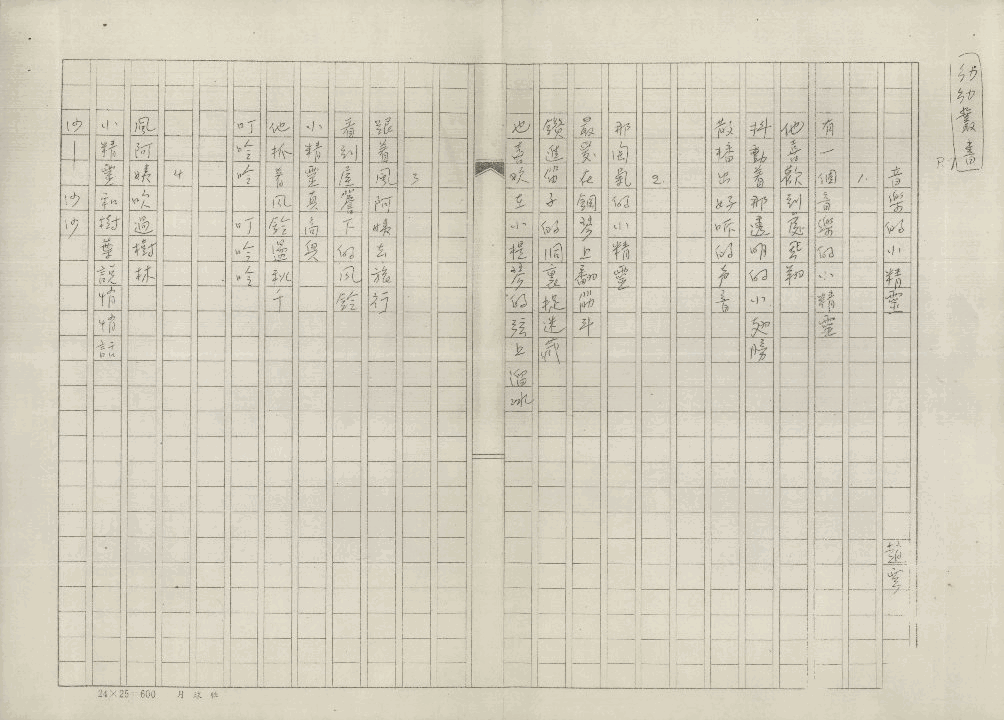 幼幼叢書
P.1
音樂的小精靈
趙雲
1.
有一個音樂的小精靈
他喜歡到處飛翔
抖動著那透明的小翅膀
散播出好听的声音
2.
那陶氣的小精靈
最愛在鋼琴上翻筋斗
鑽進笛子的洞裏捉迷藏
也喜欢在小提琴的弦上溜冰
3
跟着風阿姨去旅行
看到屋簷下的風鈴
小精靈真高興
他抓着風鈴盪鞦千
叮呤呤 叮呤呤
4
風阿姨吹過樹林
小精靈和樹葉說悄悄話
沙— 沙沙
24×25=600